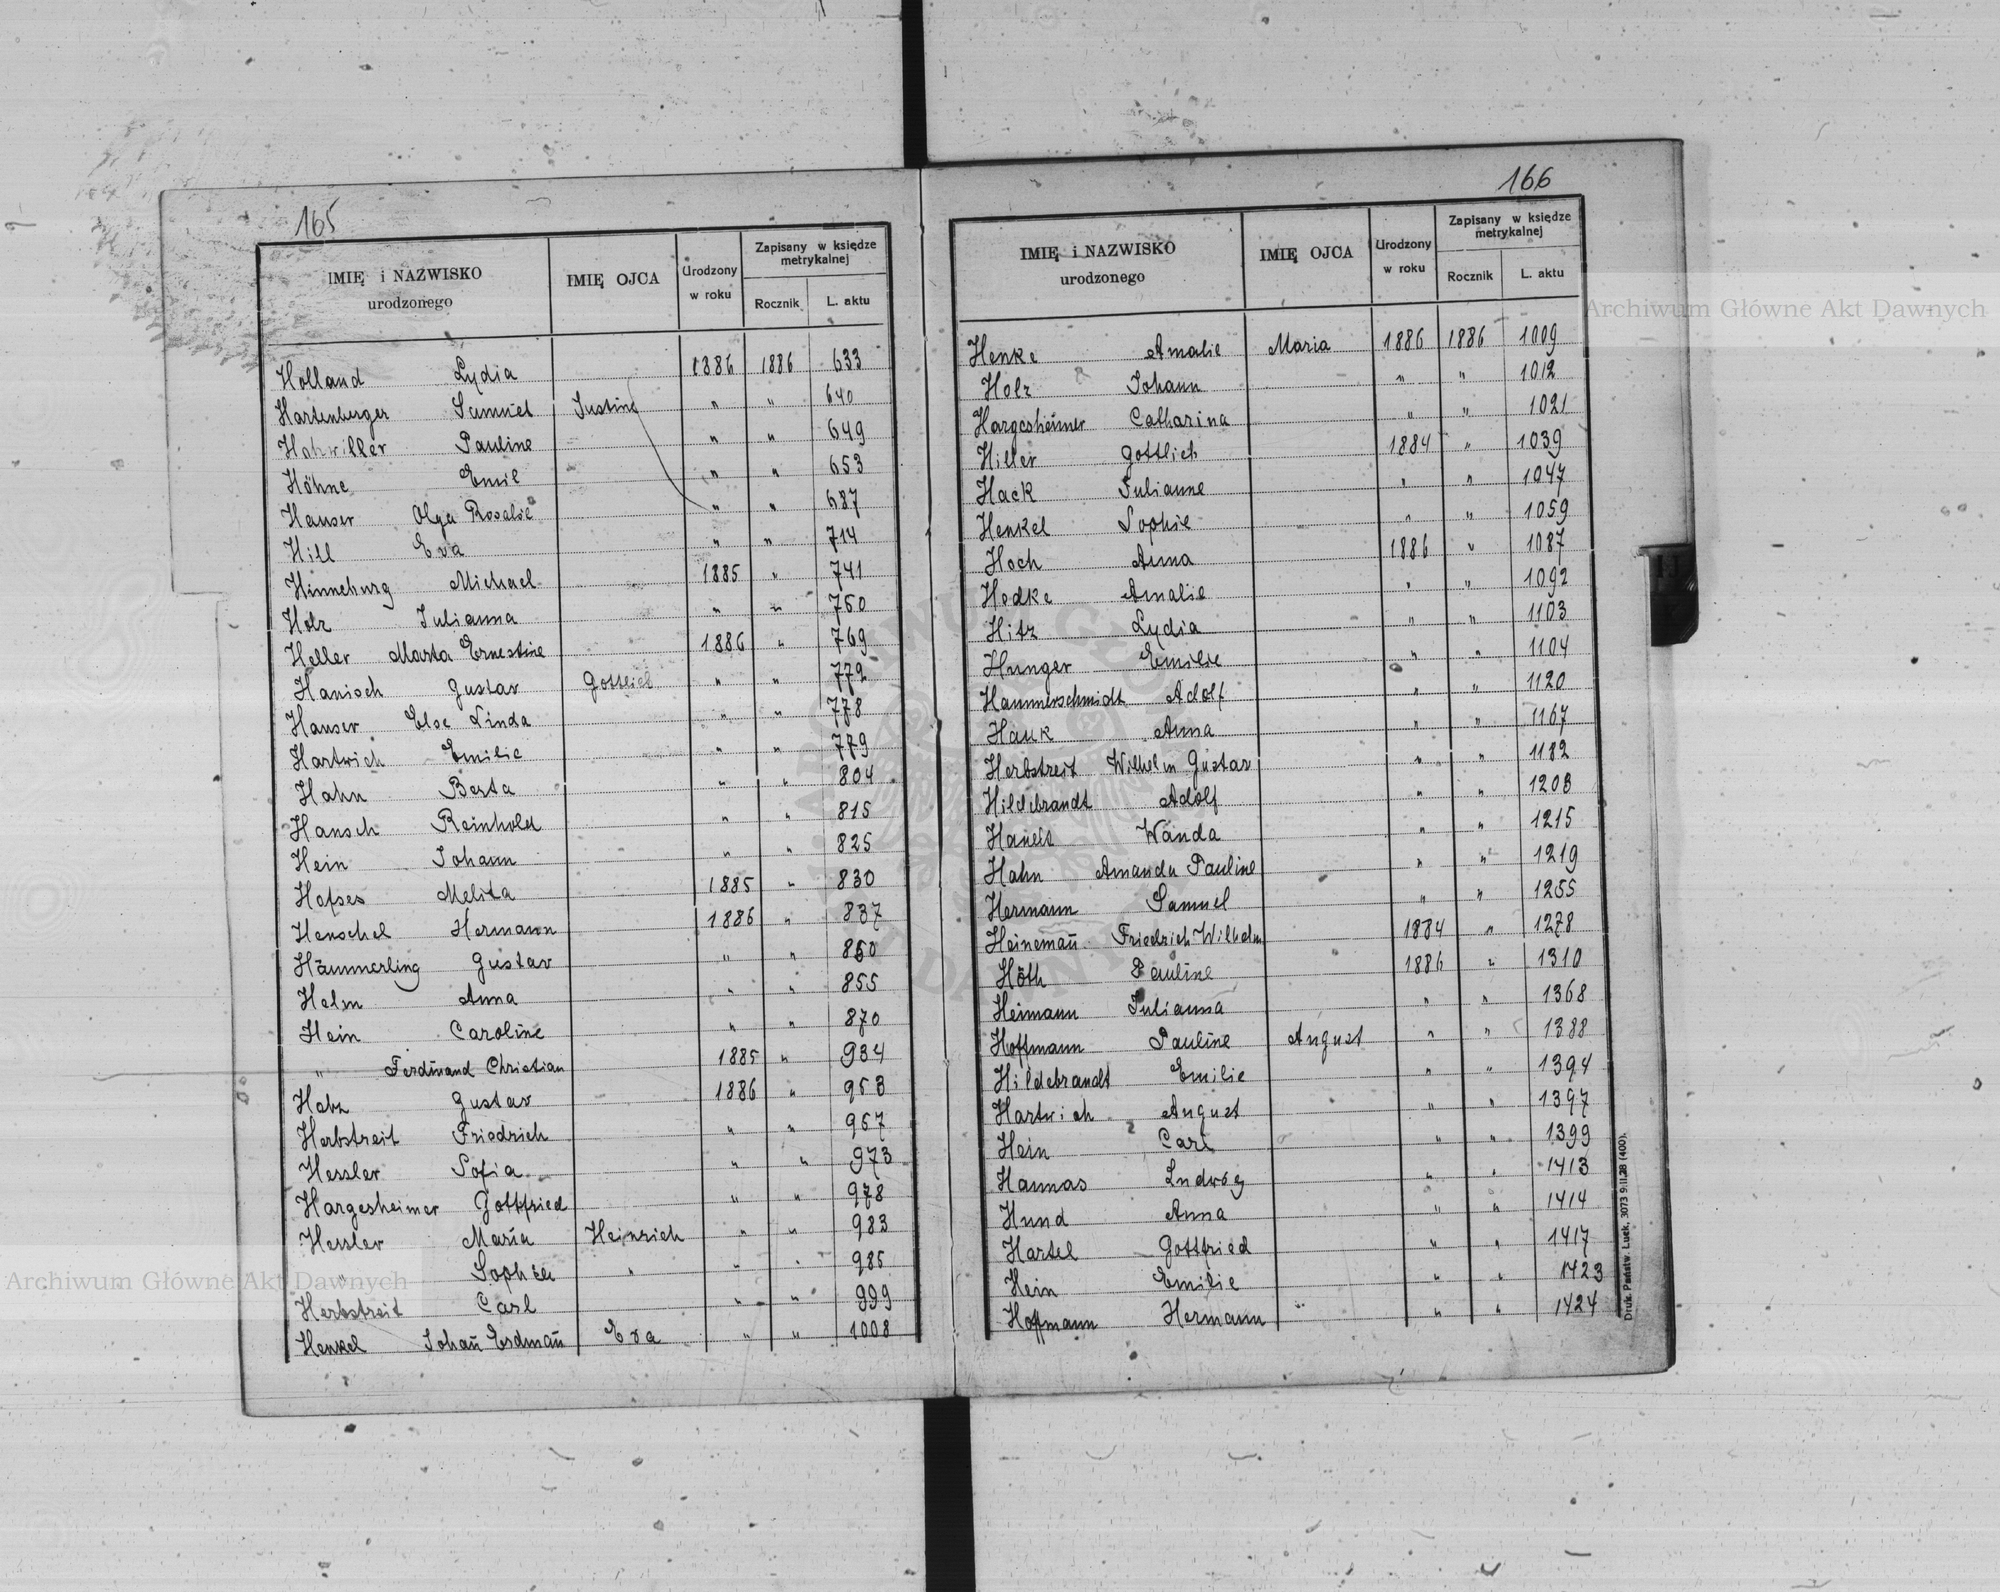 165
IMIĘ i NAZWISKO urodzonego | IMIĘ OJCA | Urodzony w roku | Zapisany w księdze metrykalnej
Rocznik | L. aktu
Holland Lydia 1886 1886 633
Hartenberger Samuel Justine " " 640
Hohwiller Pauline " " 649
Höhne Emil " " 653
Hauser Olga Rosalie " " 687
Hill Eva " " 714
Hinneburg Michael 1885 " 741
Holz Julianna " " 760
Heller Marta Ernestine 1886 " 769
Hanisch Gustav Gottlieb " " 772
Hauser Else Linda " " 778
Hartwich Emilie " " 779
Hahn Berta " " 804
Hansch Reinhold " " 815
Hein Johann " " 825
Hofses Melita 1885 " 830
Henschel Hermann 1886 " 837
Hämmerling Gustav " " 860
Helm Anna " " 855
Hein Caroline " " 870
" Ferdinand Christian 1885 " 934
Gustav 1886 " 953
Herbstreit Friedrich " " 967
Hessler Sofia " " 973
Hargesheimer Gottfried " " 978
Hessler Maria Heinrich " " 983
" Sophia " " " 985
Herbstreit Carl " " 999
Henkel Johan̄ Erdman̄ Eva " " 1008
166
IMIĘ i NAZWISKO urodzonego | IMIĘ OJCA | Urodzony w roku | Zapisany w księdze metrykalnej
Rocznik | L. aktu
Henke Amalie Maria 1886 1886 1009
Holz Johann " " 1012
Hargesheimer Catharina " " 1021
Hiller Gottlieb 1884 " 1039
Hack Julianne " " 1047
Henkel Sophie " " 1059
Hoch Anna 1886 " 1087
Hodke Amalie " " 1092
Hitz Lydia " " 1103
Hunger Emilie " " 1104
Hammerschmidt Adolf " " 1120
Hauk Anna " " 1167
Herbstreit Wilhelm Gustav " " 1182
Hildebrandt Adolf " " 1208
Wanda " " 1215
Hahn Amanda Pauline " " 1219
Hermann Samuel " " 1255
Heineman̄ Friedrich Wilhelm 1884 " 1278
Höth Pauline 1886 " 1310
Heimann Julianna " " 1368
Hoffmann Pauline August " " 1388
Hildebrandt Emilie " " 1394
Hartwich August " " 1397
Hein Carl " " 1399
Hannas Ludwig " " 1413
Hund Anna " " 1414
Hartel Gottfried " " 1417
Hein Emilie " " 1423
Hoffmann Hermann " " 1424
Druk. Państw. Łuck. 3073 9.II.28 (400).
Archiwum Główne Akt Dawnych
Archiwum Główne Akt Dawnych